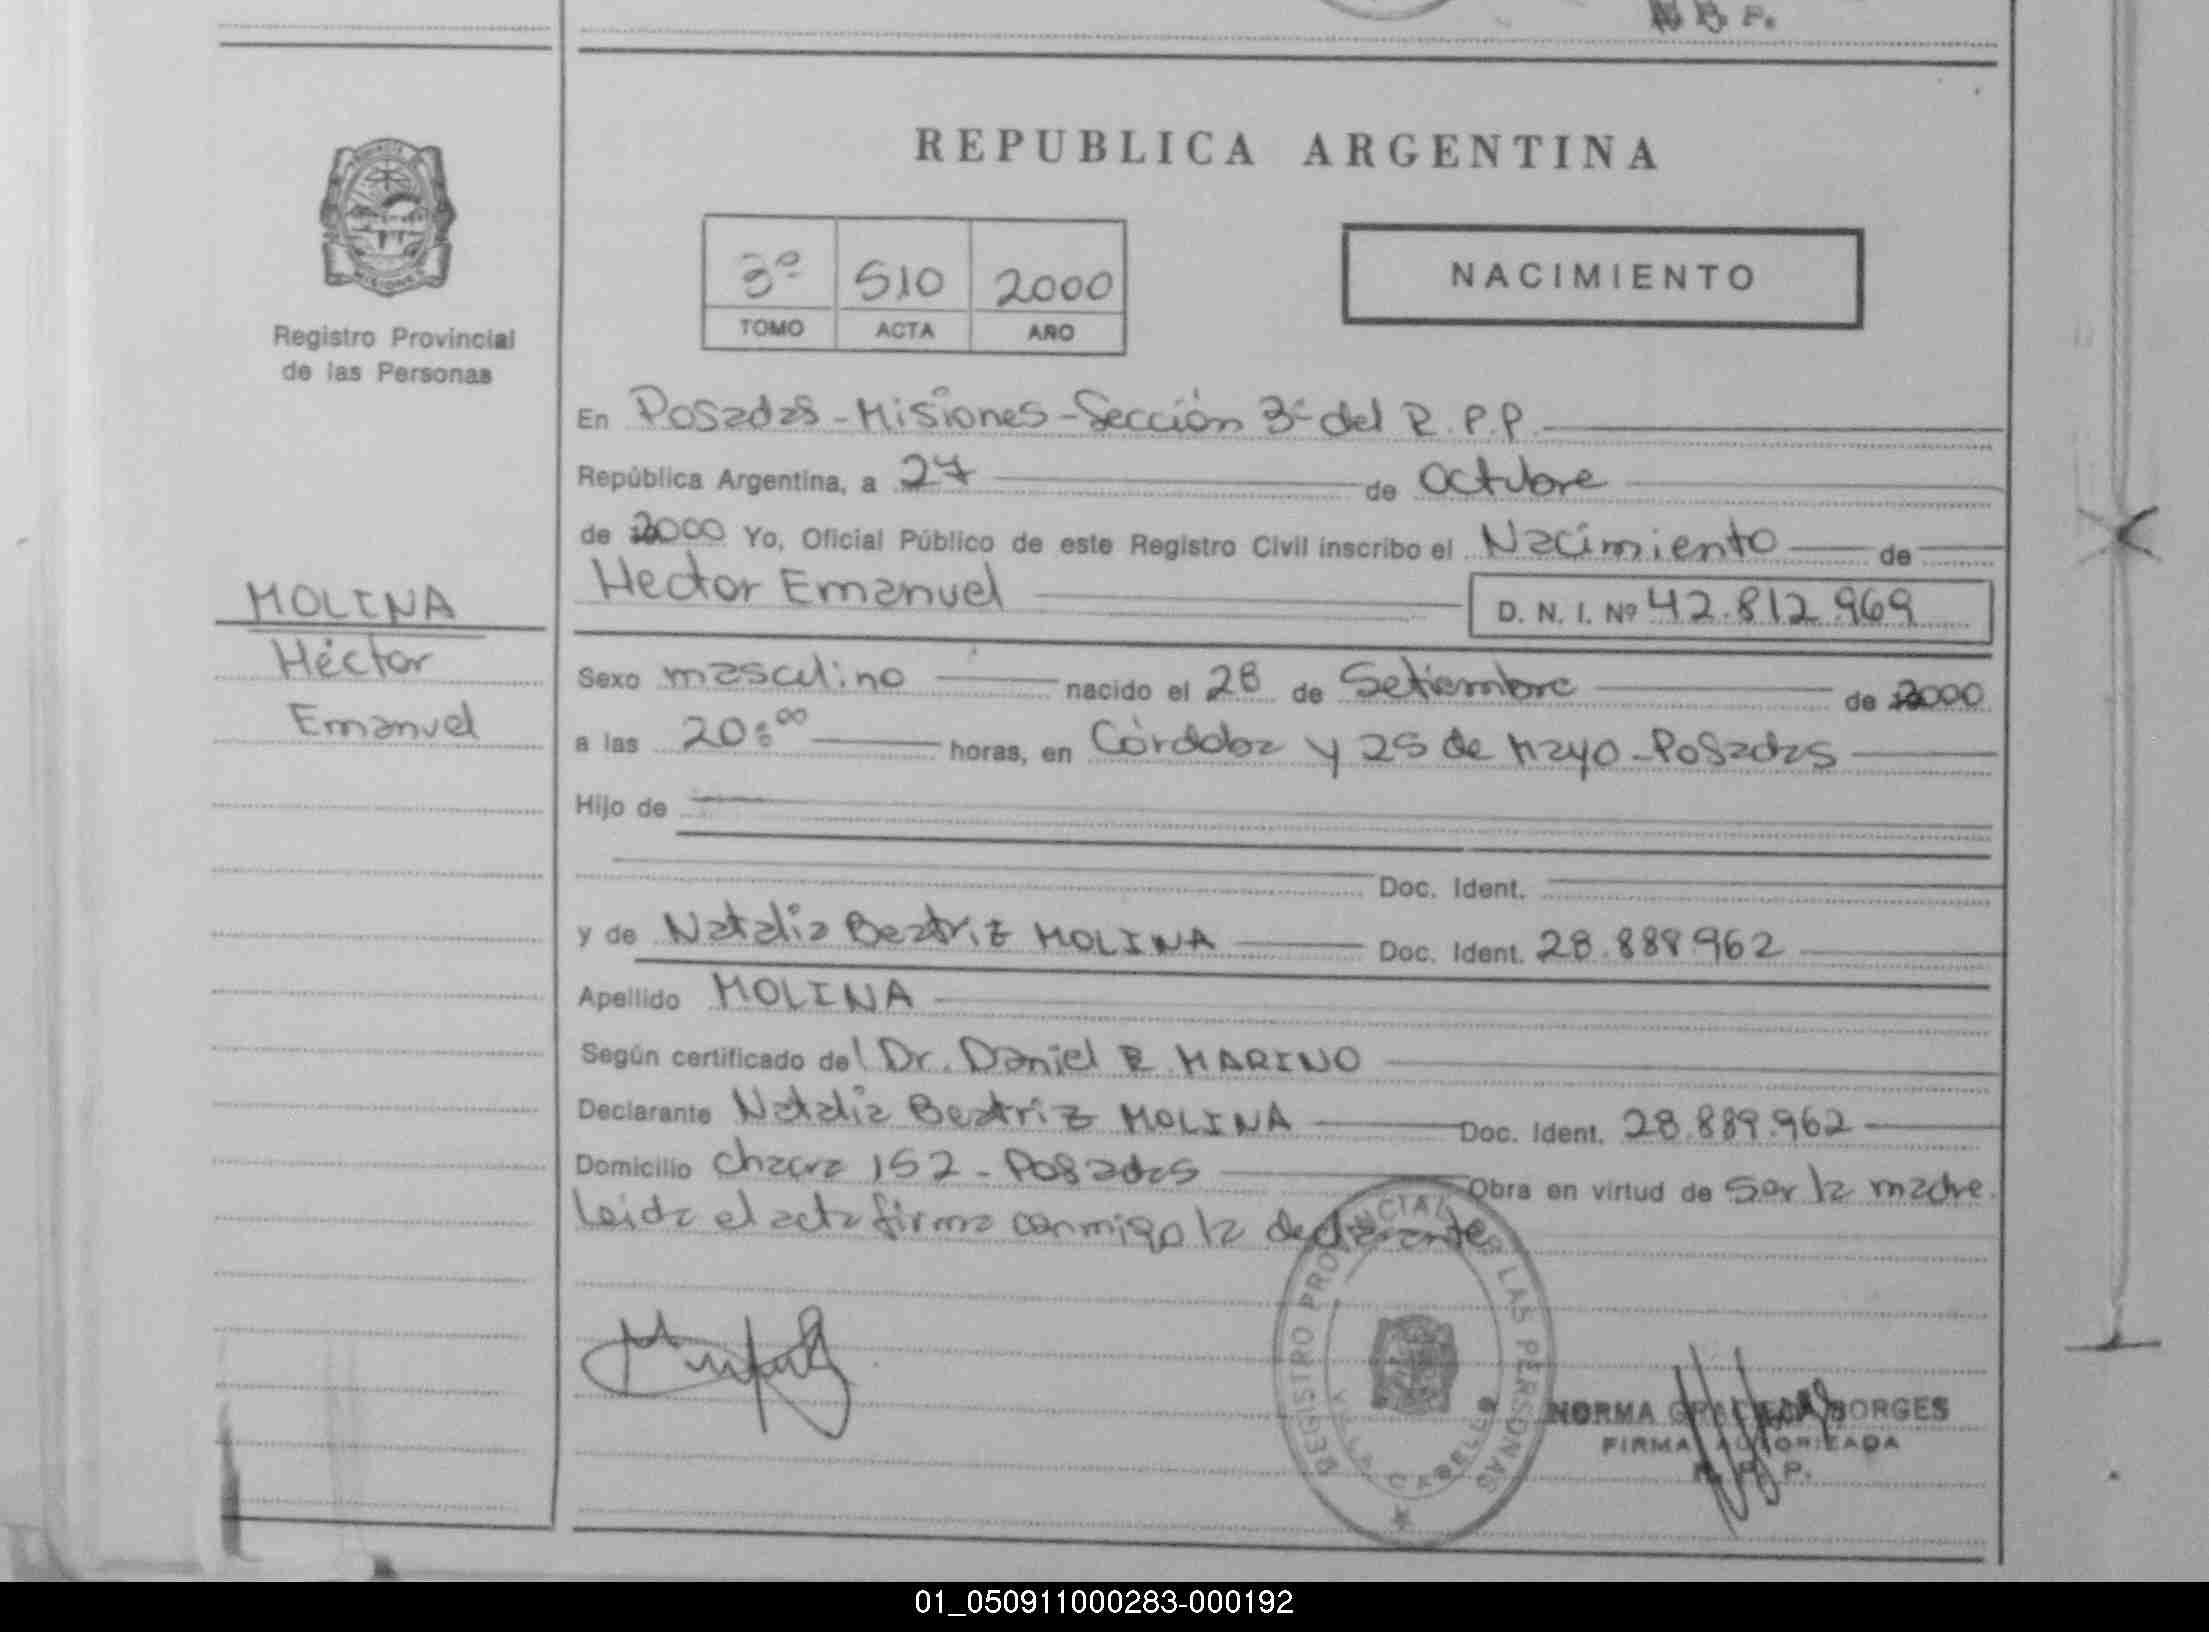 REPUBLICA ARGENTINA
3º 510 2000
TOMO ACTA AÑO
NACIMIENTO
MISIONES
Registro Provincial
de las Personas
MOLINA
Héctor
Emanuel
En Posadas - Misiones - Sección 3ª del R.P.P.
República Argentina, a 27 de Octubre
de 2000 Yo, Oficial Público de este Registro Civil inscribo el Nacimiento de
Hector Emanuel D. N. I. Nº 42.812.969
Sexo masculino nacido el 28 de Setiembre de 2000
a las 20:00 horas, en Córdoba y 25 de Mayo - Posadas
Hijo de
Doc. Ident.
y de Natalia Beatriz MOLINA Doc. Ident. 28.889.962
Apellido MOLINA
Según certificado del Dr. Daniel R. MARINO
Declarante Natalia Beatriz MOLINA Doc. Ident. 28.889.962
Domicilio chacra 152 - Posadas Obra en virtud de ser la madre.
Leida el acta firma conmigo la declarante
REGISTRO PROVINCIAL DE LAS PERSONAS
VILLA CABELLO
NORMA GRACIELA BORGES
FIRMA AUTORIZADA
R. P. P.
01_050911000283-000192